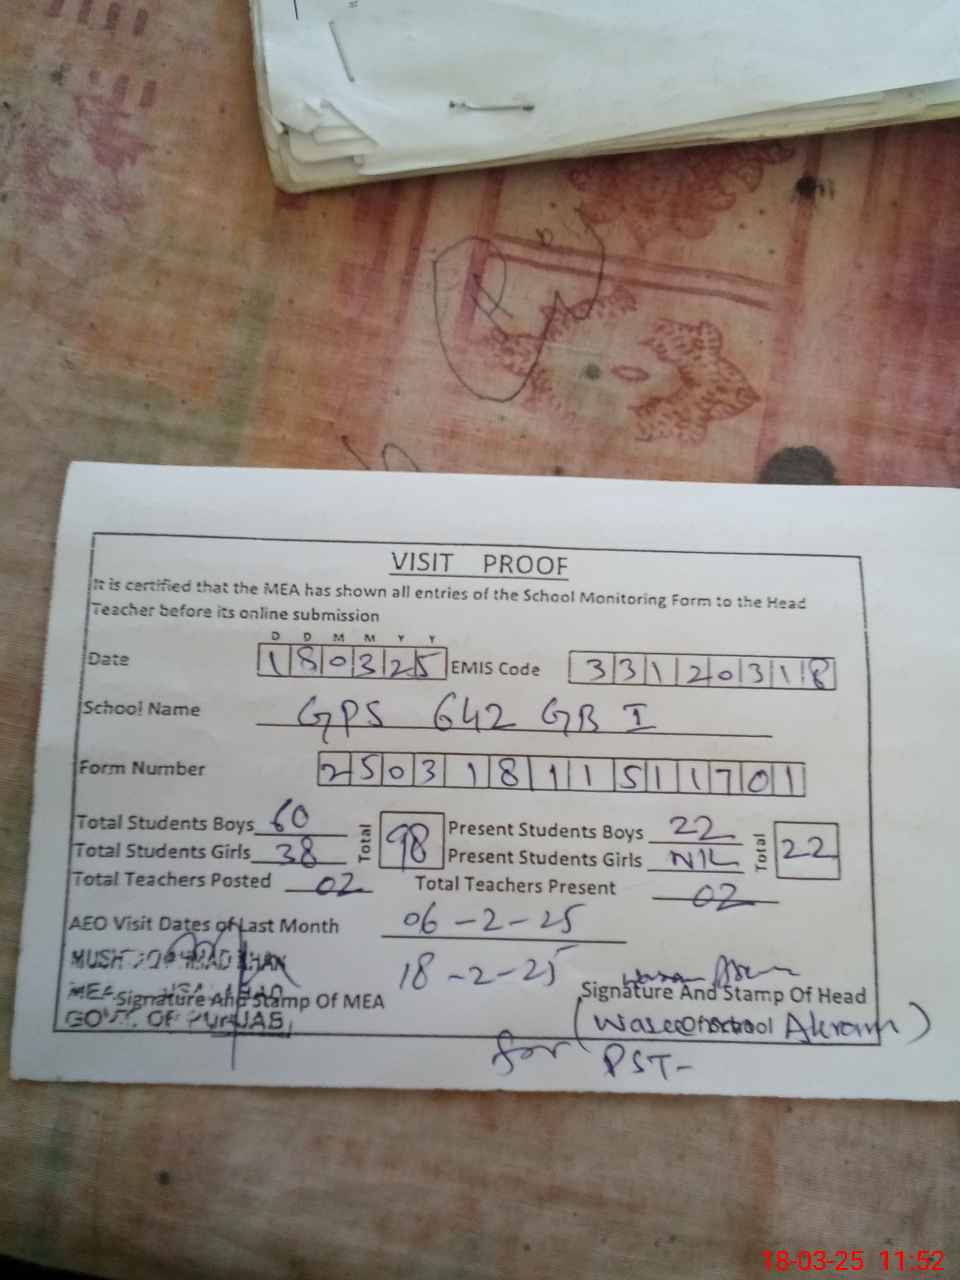 VISIT PROOF
It is certified that the MEA has shown all entries of the School Monitoring Form to the Head
Teacher before its online submission
D D M M Y Y
Date 180325 EMIS Code 33120318
School Name GPS 642 GB I
Form Number 25031811511701
Total Students Boys 60 Total 98 Present Students Boys 22 Total 22
Total Students Girls 38 Present Students Girls NIL
Total Teachers Posted 02 Total Teachers Present 02
AEO Visit Dates of Last Month 06-2-25
18-2-25
KHAN
MEA
Signature And Stamp Of MEA Signature And Stamp Of Head
GOVT. OF PUNJAB (Waseem Akram)
for PST-
18-03-25 11:52